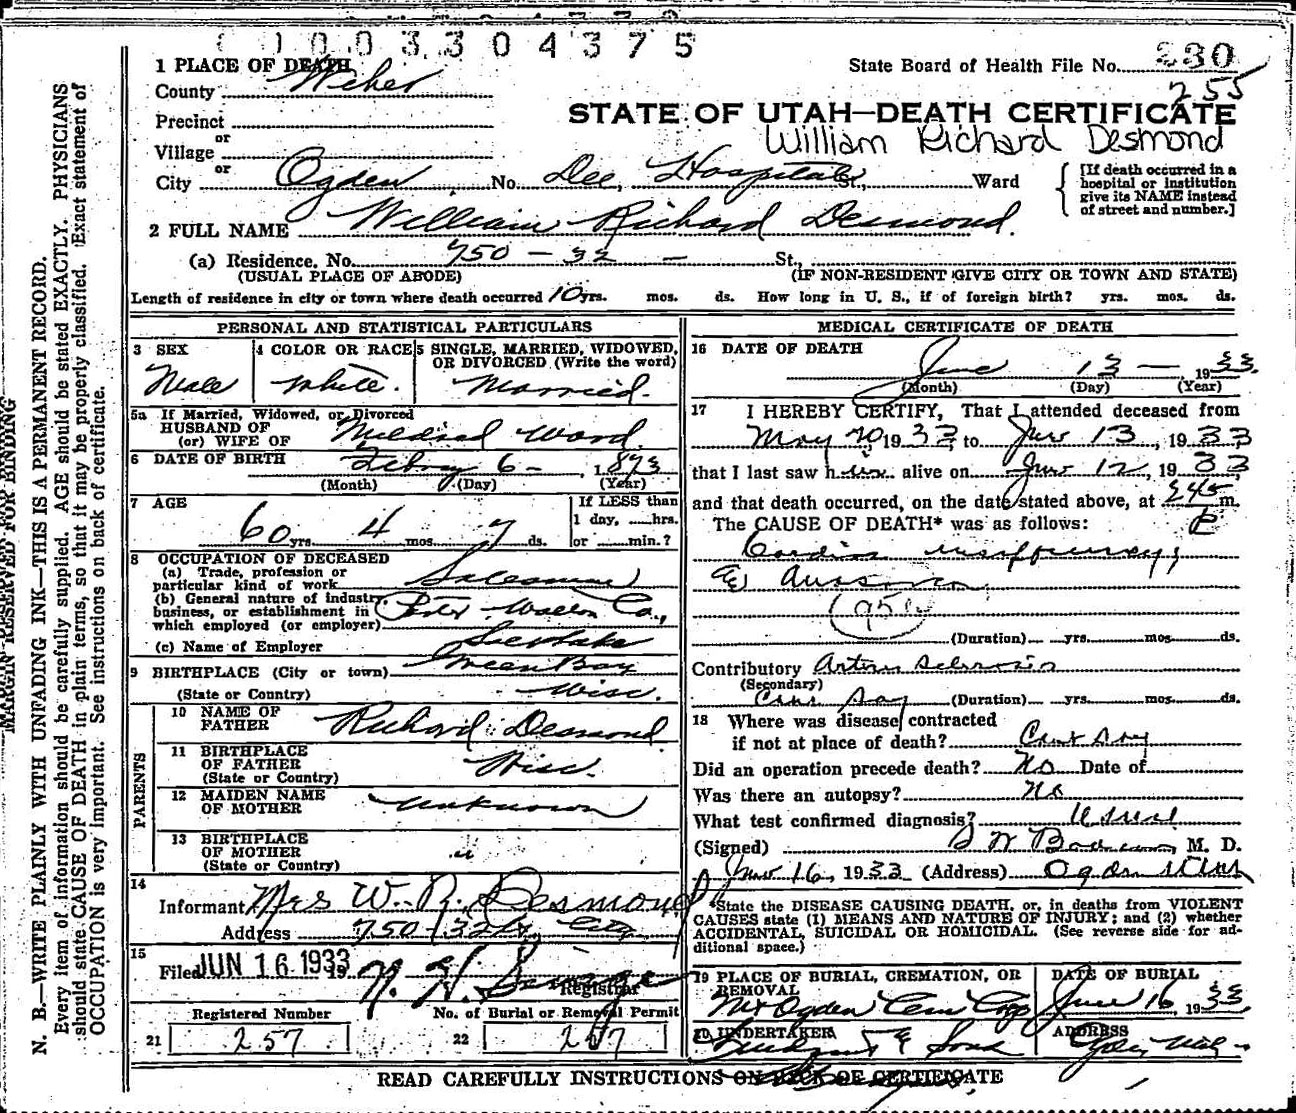 0 0 3 3 0 4 3 7 5
1 PLACE OF DEATH
State Board of Health File No. 230
County Weber
255
STATE OF UTAH—DEATH CERTIFICATE
Precinct
or
William Richard Desmond
Village
or
City Ogden No. Dee, Hospital St., Ward
[If death occurred in a hospital or institution give its NAME instead of street and number.]
2 FULL NAME William Richard Desmond.
(a) Residence, No. 750 - 32 - St.,
(USUAL PLACE OF ABODE) (IF NON-RESIDENT GIVE CITY OR TOWN AND STATE)
Length of residence in city or town where death occurred 10 yrs. mos. ds. How long in U. S., if of foreign birth? yrs. mos. ds.
PERSONAL AND STATISTICAL PARTICULARS
3 SEX
Male
4 COLOR OR RACE
White.
5 SINGLE, MARRIED, WIDOWED,
OR DIVORCED (Write the word)
Married.
5a If Married, Widowed, or Divorced
HUSBAND OF
(or) WIFE OF Mildred Ward.
6 DATE OF BIRTH Febry 6 - , 1873
(Month) (Day) (Year)
7 AGE
60 yrs. 4 mos. 7 ds.
If LESS than
1 day, ......hrs.
or ......min.?
8 OCCUPATION OF DECEASED
(a) Trade, profession or
particular kind of work Salesman
(b) General nature of industry,
business, or establishment in
which employed (or employer) Co.,
(c) Name of Employer Salt Lake
9 BIRTHPLACE (City or town) Green Bay
(State or Country) Wisc.
PARENTS
10 NAME OF
FATHER Richard Desmond.
11 BIRTHPLACE
OF FATHER
(State or Country) Wisc.
12 MAIDEN NAME
OF MOTHER Unknown
13 BIRTHPLACE
OF MOTHER
(State or Country) "
14
Informant Mrs W. R. Desmond
Address 750 - 32 City
15
Filed JUN 16 1933
Registrar
Registered Number
21 257
No. of Burial or Removal Permit
22 267
MEDICAL CERTIFICATE OF DEATH
16 DATE OF DEATH
June 13 — 1933.
(Month) (Day) (Year)
17 I HEREBY CERTIFY, That I attended deceased from
May 20 1933 to June 13, 1933
that I last saw him alive on June 12, 1933
and that death occurred, on the date stated above, at 245 m.
P
The CAUSE OF DEATH* was as follows:
Cardiac
(95
(Duration) yrs. mos. ds.
Contributory Arterio Sclerosis
(Secondary)
(Duration) yrs. mos. ds.
18 Where was disease contracted
if not at place of death? Cant Say
Did an operation precede death? No Date of
Was there an autopsy? No
What test confirmed diagnosis? Usual
(Signed) M. D.
June 16, 1933 (Address) Ogden Utah
*State the DISEASE CAUSING DEATH, or, in deaths from VIOLENT
CAUSES state (1) MEANS AND NATURE OF INJURY; and (2) whether
ACCIDENTAL, SUICIDAL OR HOMICIDAL. (See reverse side for ad-
ditional space.)
19 PLACE OF BURIAL, CREMATION, OR
REMOVAL
Mt Ogden Cem
DATE OF BURIAL
June 16, 1933
20 UNDERTAKER
& Sons
ADDRESS
Ogden Utah
READ CAREFULLY INSTRUCTIONS ON BACK OF CERTIFICATE
MARGIN RESERVED FOR BINDING
N. B.—WRITE PLAINLY WITH UNFADING INK—THIS IS A PERMANENT RECORD.
Every item of information should be carefully supplied. AGE should be stated EXACTLY. PHYSICIANS
should state CAUSE OF DEATH in plain terms, so that it may be properly classified. Exact statement of
OCCUPATION is very important. See instructions on back of certificate.